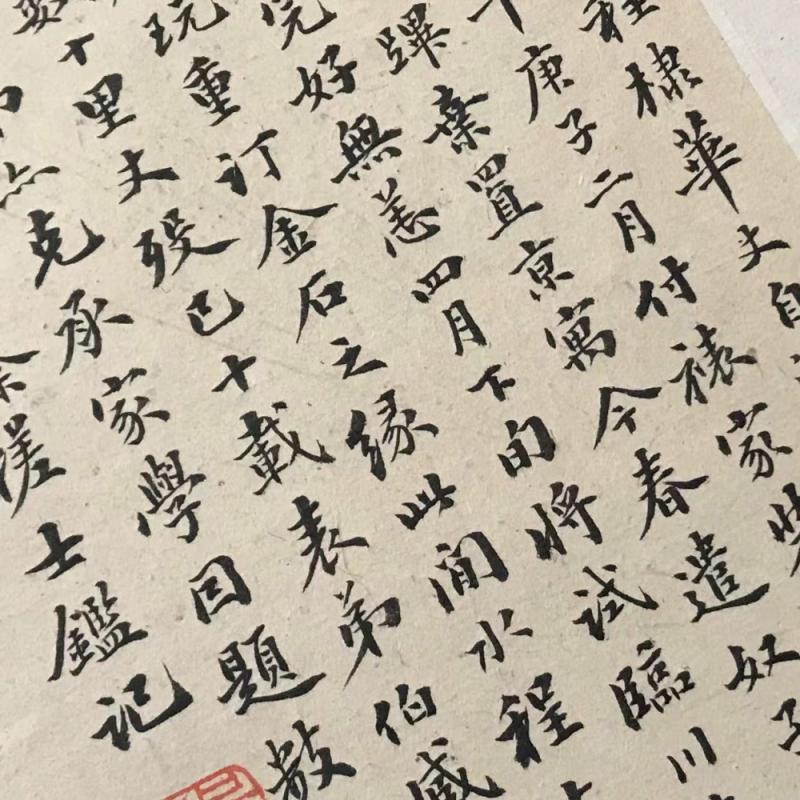 程棣華丈自
庚子二月付裱家
棄置京寓今春遣奴子
完好無恙四月下旬將試臨川
玩重訂金石之緣此間水程
數十里丈歿已十載表弟伯臧
亦克承家學因題數
士鑑記